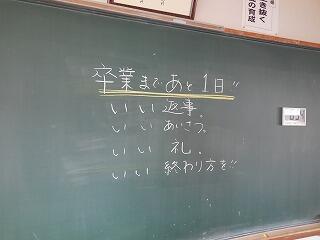 き抜く
の育成
卒業まであと1日!!
いい返事。
いいあいさつ。
いい礼。
いい終わり方を!!